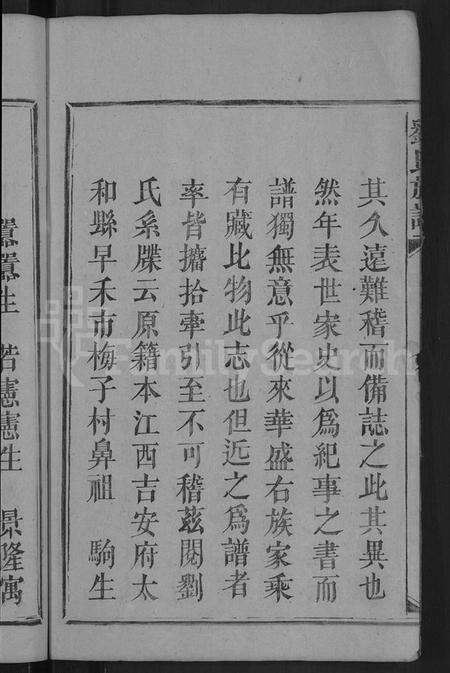 劉氏族譜
其久遠難稽而備誌之此其異也
然年表世家史以爲紀事之書而
譜獨無意乎從來華盛右族家乘
有藏比物此志也但近之爲譜者
率皆攟拾牽引至不可稽茲閱劉
氏系牒云原籍本江西吉安府太
和縣早禾市梅子村鼻祖 駒生
翯翯生 若憲憲生 景隆寓
FamilySearch